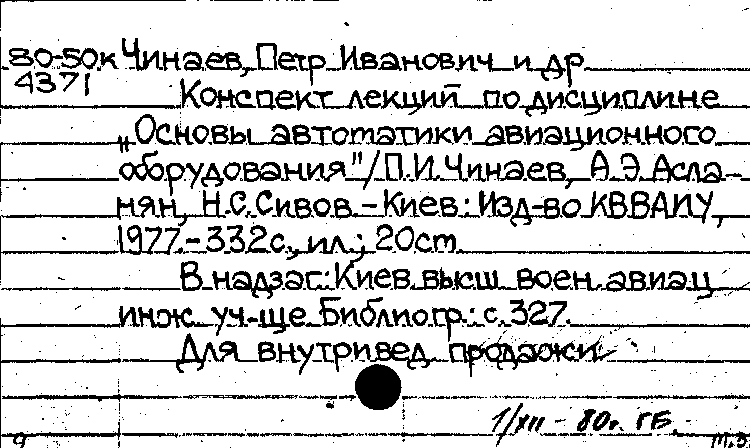 80-50к Чинаев, Петр Иванович и др
4371
Конспект лекций по дисциплине
„Основы автоматики авиационного
оборудования"/П.И.Чинаев, А.Э.Асла-
нян, Н.С.Сивов.-Киев: Изд-во КВВАИУ,
1977.-332с., ил.; 20ст
В надзаг: Киев. высш воен. авиац
инж. уч-ще Библиогр.: с.327.
Для внутривед продажи
1/XII - 80г. ГБ.